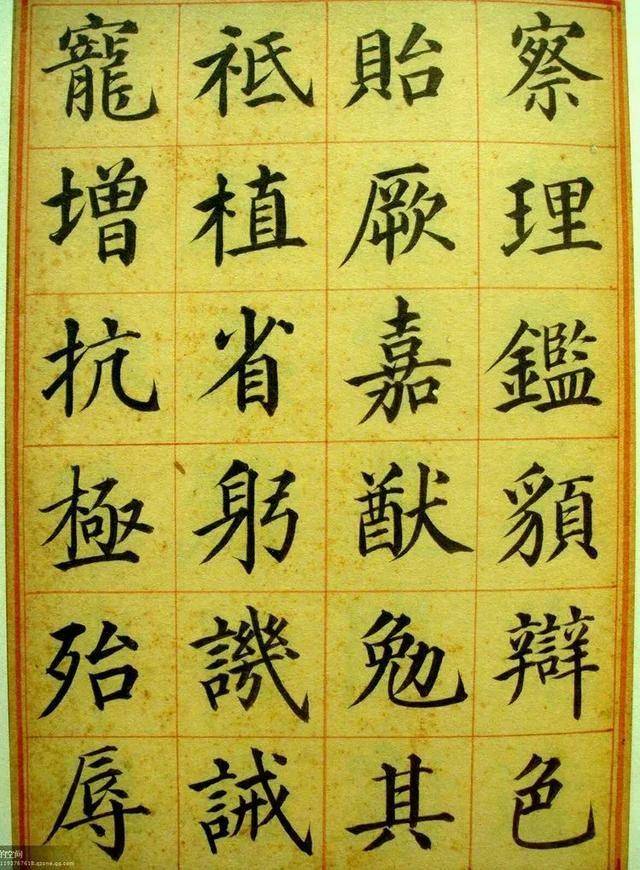 察理鑑貌辯色
貽厥嘉猷勉其
祗植省躬譏誡
寵增抗極殆辱
的空间
1193767618.qzone.qq.com